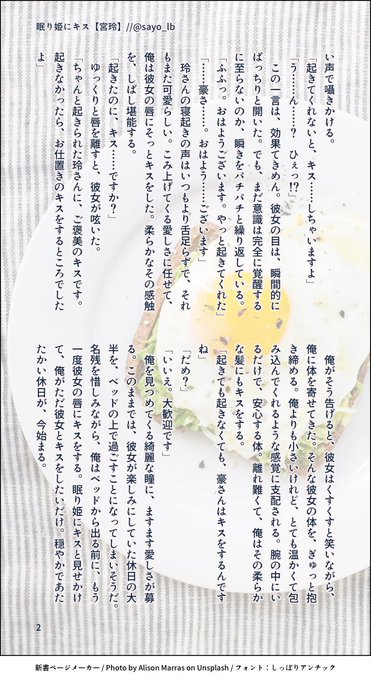 眠り姫にキス【宮玲】//@sayo_lb
い声で囁きかける。
「起きてくれないと、キス……しちゃいますよ」
「う……ん……？　ひぇっ!?」
この一言は、効果てきめん。彼女の目は、瞬間的に
ぱっちりと開いた。でも、まだ意識は完全に覚醒する
に至らないのか、瞬きをパチパチと繰り返している。
「ふふっ。おはようございます。やっと起きてくれた」
「……豪さ……。おはよう……ございます」
玲さんの寝起きの声はいつもより舌足らずで、それ
もまた可愛らしい。こみ上げてくる愛しさに任せて、
俺は彼女の唇にそっとキスをした。柔らかなその感触
を、しばし堪能する。
「起きたのに、キス……ですか？」
ゆっくりと唇を離すと、彼女が呟いた。
「ちゃんと起きられた玲さんに、ご褒美のキスです。
起きなかったら、お仕置きのキスをするところでした
よ」
俺がそう告げると、彼女はくすくすと笑いながら、
俺に体を寄せてきた。そんな彼女の体を、ぎゅっと抱
き締める。俺よりも小さいけれど、とても温かくて包
み込んでくれるような感覚に支配される。腕の中にい
るだけで、安心する体。離れ難くて、俺はその柔らか
な髪にもキスをする。
「起きても起きなくても、豪さんはキスをするんです
ね」
「だめ？」
「いいえ。大歓迎です」
俺を見つめてくる綺麗な瞳に、ますます愛しさが募
る。このままでは、彼女が楽しみにしていた休日の大
半を、ベッドの上で過ごすことになってしまいそうだ。
名残を惜しみながら、俺はベッドから出る前に、もう
一度彼女の唇にキスをする。眠り姫にキスと見せかけ
て、俺がただ彼女とキスをしたいだけ。穏やかであた
たかい休日が、今始まる。
2
新書ページメーカー / Photo by Alison Marras on Unsplash / フォント：しっぽりアンチック